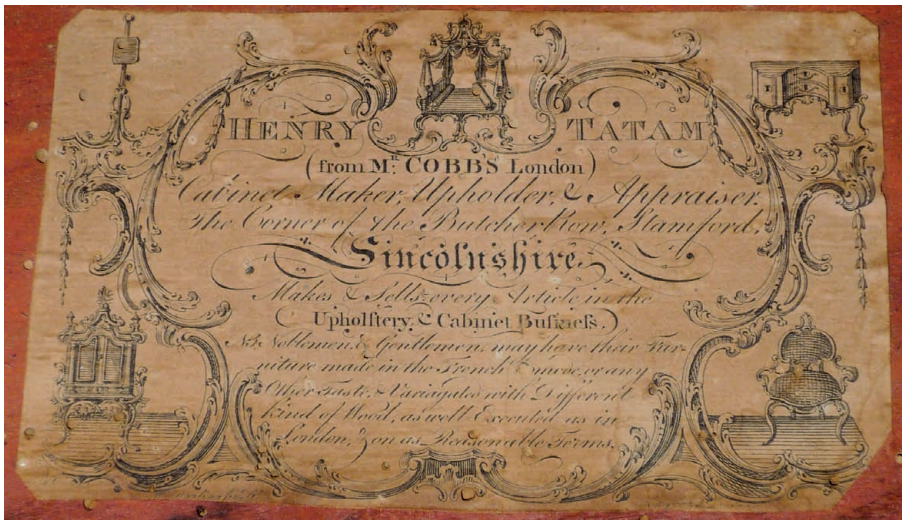 HENRY TATAM
(from Mr. COBBS London)
Cabinet Maker, Upholder, & Appraiser,
The Corner of the Butcher Row, Stamford,
Lincolnshire.
Makes & Sells every Article in the
(Upholſtery, & Cabinet Buſineſs.)
NB. Noblemen, & Gentlemen, may have their Fur-
niture made in the French mode, or any
Other Taste, & Variagated with Different
kind of Wood, as well Executed as in
London, & on as Reasonable Terms.